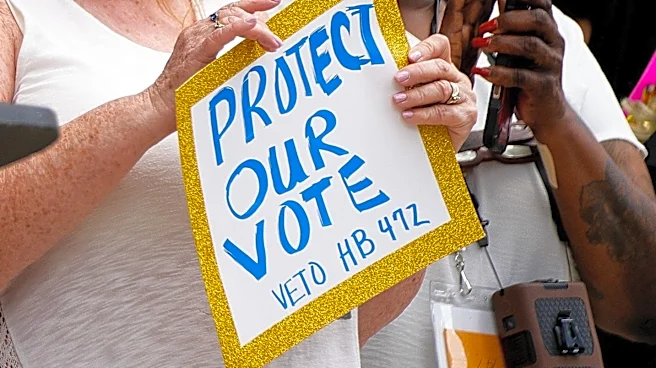 PROTECT
OUR
VOTE
VETO HB 472